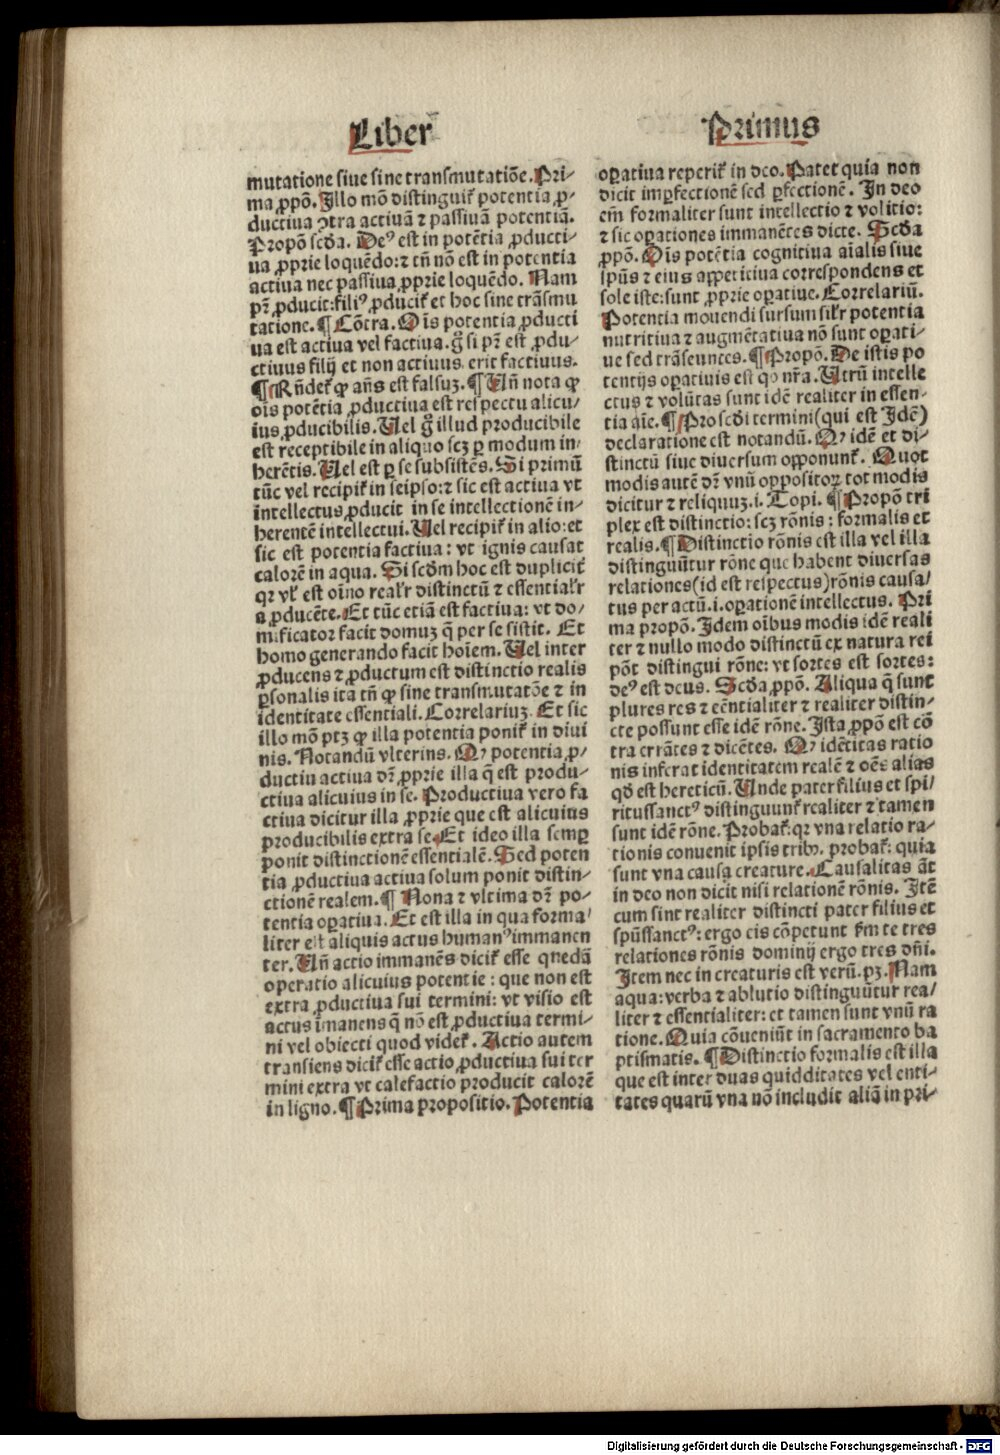 Liber
Primus
mutatione siue sine transmutatiōe. Pri⸗
ma ꝓpō. Illo mō distinguit᷑ potentia ꝓ⸗
ductiua ↄ̨tra actiuā ⁊ passiuā potentiā.
Propō scd̓a. Deꝰ est in potētia ꝓducti⸗
ua ꝓprie loquēdo: ⁊ tn̄ nō est in potentia
actiua nec passiua ꝓprie loquēdo. Nam
pr̄ ꝓducit: filiꝰ ꝓducit᷑ et hoc sine trāsmu
tatione. ¶ Cōtra. Oīs potentia ꝓducti
ua est actiua vel factiua. g̊ si pr̄ est ꝓdu⸗
ctiuus filij et non actiuus erit factiuus.
¶ Rn̄det᷑ ꝙ an̄s est falsuꝫ. ¶ Un̄ nota ꝙ
oīs potētia ꝓductiua est respectu alicu⸗
ius ꝓducibilis. Uel g̊ illud producibile
est receptibile in aliquo scꝫ ꝑ modum in⸗
herētis. Uel est ꝑ se subsistēs. Si primū
tūc vel recipit᷑ in seipso: ⁊ sic est actiua vt
intellectus ꝓducit in se intellectionē in⸗
herentē intellectui. Uel recipit᷑ in alio: et
sic est potentia factiua: vt ignis causat
calorē in aqua. Si scd̓m hoc est duplicit᷑
qꝛ vl̓ est oīno real̓r distinctū ⁊ essential̓r
a ꝓducēte. Et tūc etiā est factiua: vt do⸗
mificator facit domuꝫ q̄ per se sistit. Et
homo generando facit hoīem. Uel inter
ꝓducens ⁊ ꝓductum est distinctio realis
ꝑsonalis ita tn̄ ꝙ sine transmutatōe ⁊ in
identitate essentiali. Correlariuꝫ. Et sic
illo mō ptꝫ ꝙ illa potentia ponit᷑ in diui
nis. Notandū vlterius. Qꝫ potentia ꝓ⸗
ductiu actiua dr̄ ꝓprie illa q̄ est produ⸗
ctiua alicuius in se. Productiua vero fa
ctiua dicitur illa ꝓprie que est alicuius
producibilis extra se. Et ideo illa semꝑ
ponit distinctionē essentialē. Sed poten
tia ꝓductiua actiua solum ponit distin⸗
ctionē realem. ¶ Nona ⁊ vltima dr̄ po⸗
tentia oꝑatiua. Et est illa in qua forma⸗
liter est aliquis actus humanꝰ immanen
ter. Un̄ actio immanēs dicit᷑ esse quedā
operatio alicuius potentie: que non est
extra ꝓductiua sui termini: vt visio est
actus īmanens q̄ nō est ꝓductiua termi⸗
ni vel obiecti quod videt᷑. Actio autem
transiens dicit᷑ esse actio ꝓductiua sui ter
mini extra vt calefactio producit calorē
in ligno. ¶ Prima propositio. Potentia
oꝑatiua reperit᷑ in deo. Patet quia non
dicit imꝑfectionē sed ꝑfectionē. In deo
em̄ formaliter sunt intellectio ⁊ volitio:
⁊ sic oꝑationes immanētes dicte. Scd̓a
ꝓpō. Oīs potētia cognitiua aīalis siue
spūs ⁊ eius appetitiua correspondens et
sole iste: sunt ꝓprie oꝑatiue. Correlariū.
Potentia mouendi sursum sil̓r potentia
nutritiua ⁊ augmētatiua nō sunt oꝑati⸗
ue sed trāseuntes. ¶ Propō. De istis po
tentijs oꝑatiuis est qō nr̄a. Utrū intelle
ctus ⁊ volūtas sunt idē realiter in essen⸗
tia aīe. ¶ Pro scd̓i termini (qui est Idē)
declaratione est notandū. Qꝫ idē et di⸗
stinctū siue diuersum opponunt᷑. Quot
modis autē dr̄ vnū oppositoꝝ tot modis
dicitur ⁊ reliquuꝫ. i. Topi. ¶ Propō tri
plex est distinctio: scꝫ rōnis: formalis et
realis. ¶ Distinctio rōnis est illa vel illa
distinguūtur rōne que habent diuersas
relationes (id est respectus) rōnis causa⸗
tus per actū .i. oꝑationē intellectus. Pri
ma propō. Idem oībus modis idē reali
ter ⁊ nullo modo distinctū ex natura rei
pōt distingui rōne: vt sortes est sortes:
deꝰ est deus. Scd̓a ꝓpō. Aliqua q̄ sunt
plures res ⁊ eēntialiter ⁊ realiter distin⸗
cte possunt esse idē rōne. Ista ꝓpō est cō
tra errātes ⁊ dicētes. Qꝫ idētitas ratio
nis inferat identitatem realē ⁊ oēs alias
qd̓ est hereticū. Unde pater filius et spi⸗
ritussanctꝰ distinguunt᷑ realiter ⁊ tamen
sunt idē rōne. Probat᷑: qꝛ vna relatio ra⸗
tionis conuenit ipsis tribꝰ. probat᷑: quia
sunt vna causa creature. Causalitas āt
in deo non dicit nisi relationē rōnis. Itē
cum sint realiter distincti pater filius et
spūssanctꝰ: ergo eis cōpetunt ẜm te tres
relationes rōnis dominij ergo tres dn̄i.
Item nec in creaturis est verū. pꝫ. Nam
aqua: verba ⁊ ablutio distinguūtur rea⸗
liter ⁊ essentialiter: et tamen sunt vnū ra
tione. Quia cōueniūt in sacramento ba
ptismatis. ¶ Distinctio formalis est illa
que est inter duas quidditates vel enti⸗
tates quarū vna nō includit aliā in pri⸗
Digitalisierung gefördert durch die Deutsche Forschungsgemeinschaft - DFG